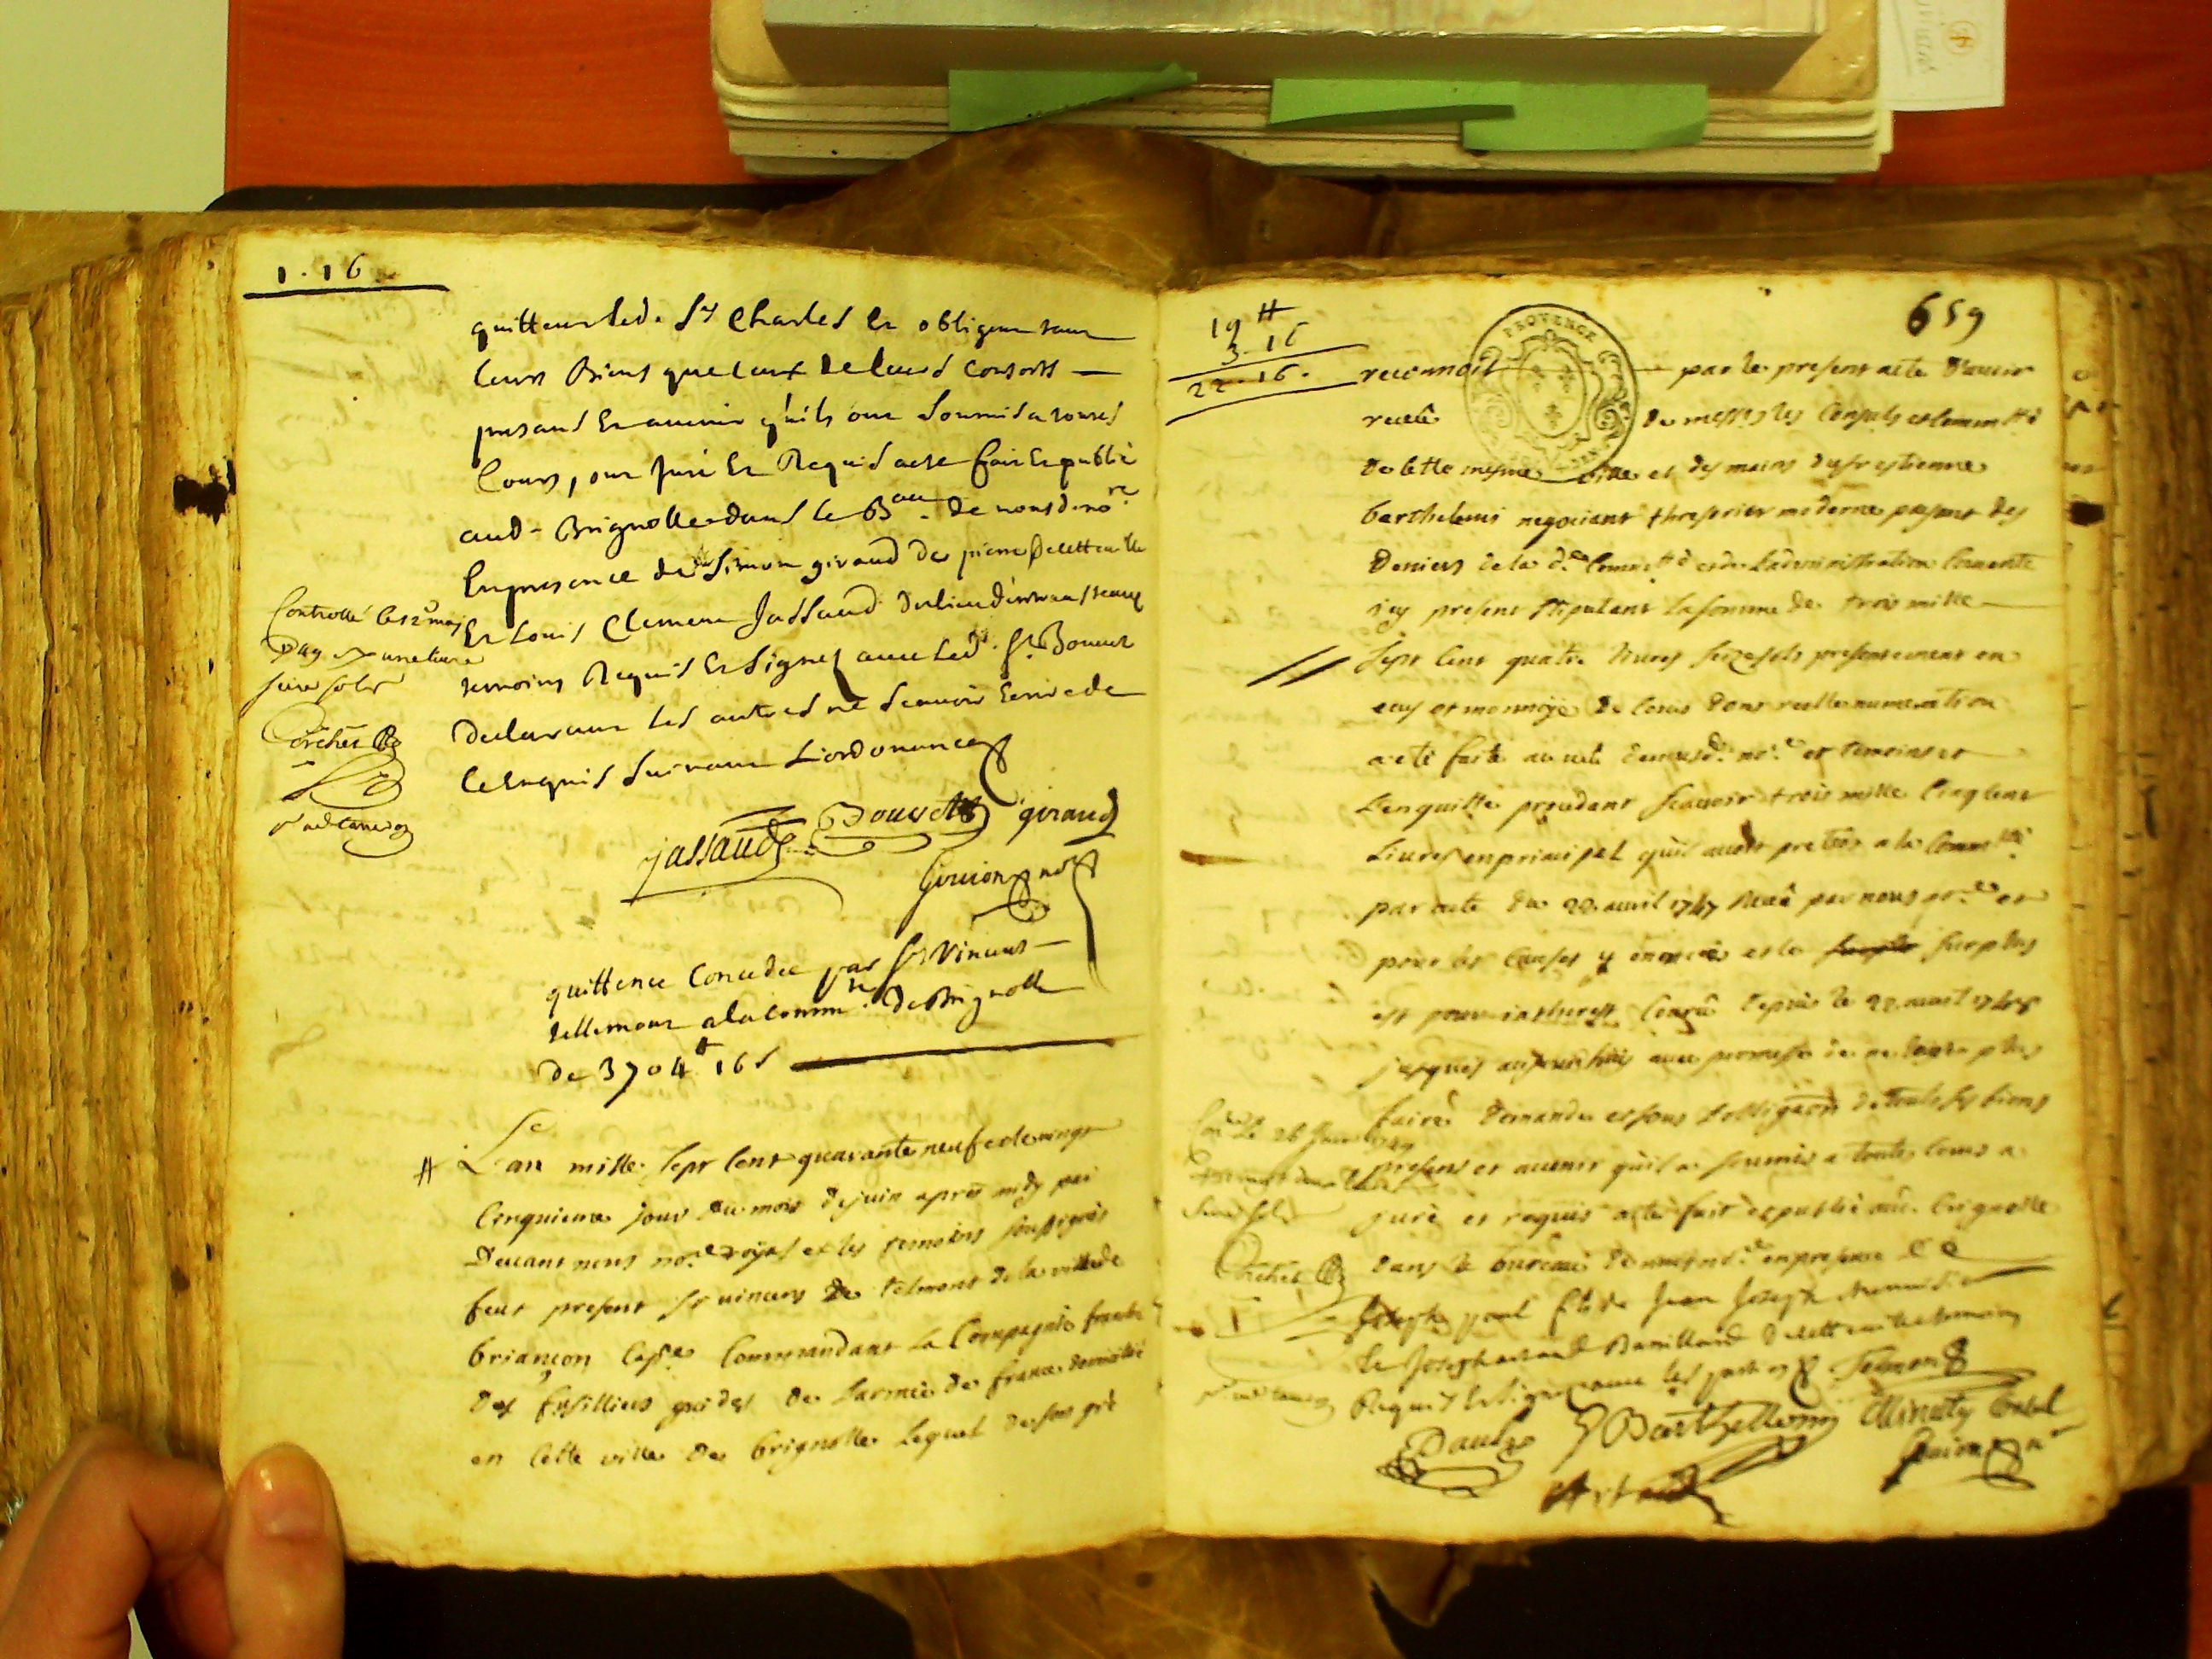 1 . 16
quitteur led. Sr Charles et obligeur tous
leurs Biens que ceux de leurs consorts
presans et avenir qu'ils ont soumis a toutes
Cours, ont juré et Requis acte fait et publié
aud. Brignolle dans le Bau. de nousd. nore
En presance de Simon giraud de pierre de cette ville
et Louis Clement Jassaud du lieu
temoins Requis et signez avec led. Sr Bouvet
declarant les autres ne scavoir Ecrire de
ce Enquis suivant L'ordonnance
Controllé le 12 may
une livre
seize sols
Porcher
jassaud Bouvet giraud
Guion nore
quittence concedée par Sr Vincens
tellemont a la commté de Brignolle
de 3704 # 16 s
L'an mille sept cent quarante neuf et le vingt
cinquieme jour du mois de juin apres midy par
devant nous nore royal et les temoins soussignés
feut present Sr vincens de telmont de la ville de
briançon Cape Commandant la Compagnie franche
des fusilliers guides de l'armée de france
en cette ville de brignolle lequel de son gré
659
19 #
3 . 16
22 . 16 .
PROVENCE
reconnoit par le present acte d'avoir
receu de messrs les Consuls et Commté
de cette mesme ville et des mains du sr estienne
barthelemi negociant thresorier moderne payant des
deniers de la de Commté et de l'administration
icy present stipulant la somme de trois mille
sept cent quatre livres seize sols presentement en
ecus et monnoye de cours dont reelle numeration
a eté faite au veu de nousd. nore et temoins et
l'en quitte procedant scavoir trois mille cinq cent
Livres en principal qu'il avoit pretées a la Commté
par acte du 22 avril 1747 receu par nous nore et
pour les causes y enoncées et le surplus
est pour intherest couru depuis le 22 avril 1748
jusques aujourd'huy avec promesse de ne luy en plus
faire demande et sous l'obligaon de touts ses biens
presens et avenir qu'il a soumis a toutes cours a
juré et requis acte fait et publié aud. brignolle
dans le bureau de nousd. nore en presence de
Joseph paul fils de Jean Joseph
et Joseph artaud de cette ville temoins
Requis et signez avec les parties Telmon
Conlé le 26 Juin 1749
seize sols
Porcher
Paul Barthellemy Minuty Consul
Artaud Guion nre